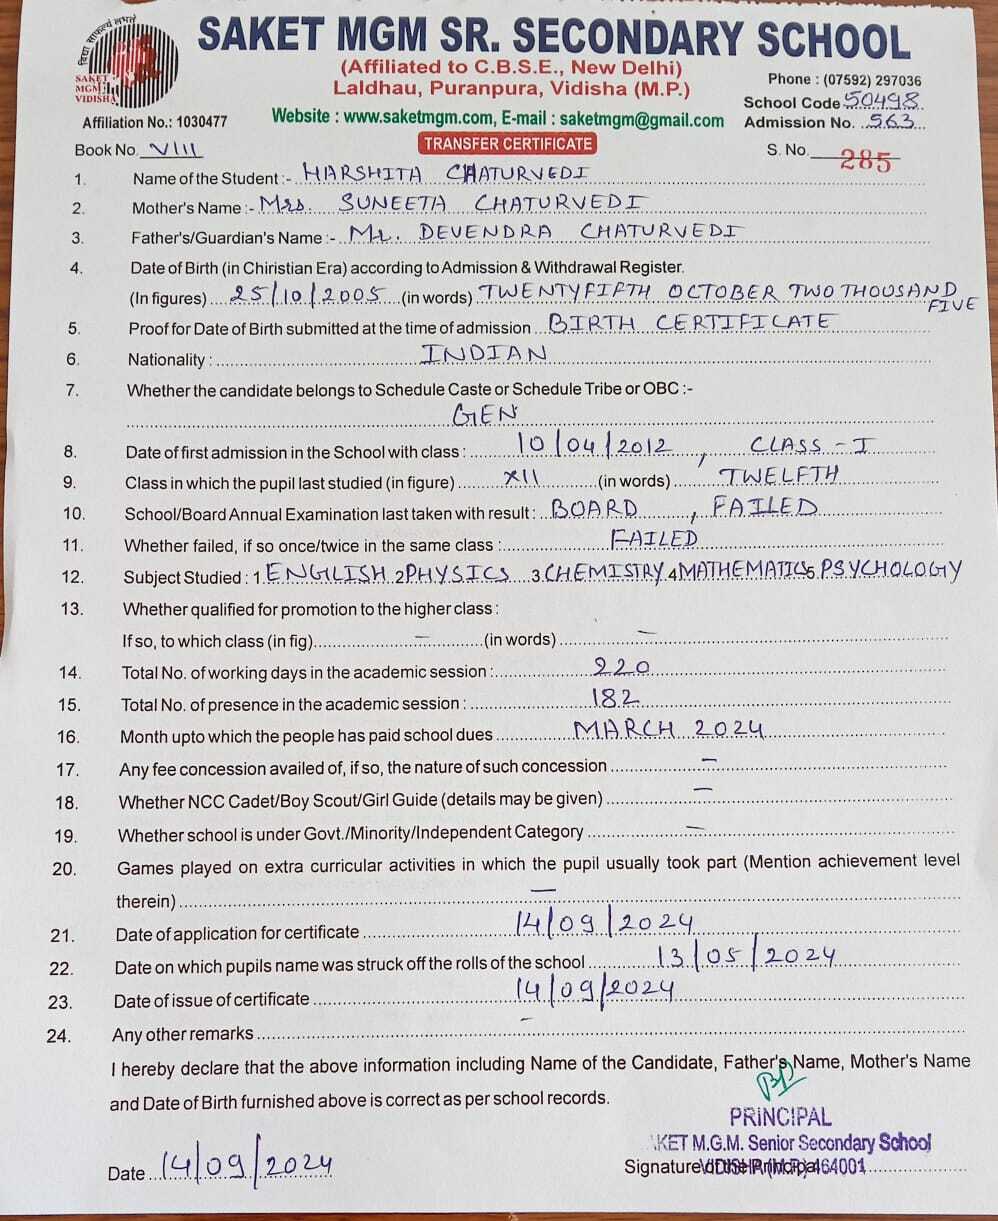 विद्या साफल्यं लभते
SAKET
MGM
VIDISHA
SAKET MGM SR. SECONDARY SCHOOL
(Affiliated to C.B.S.E., New Delhi)
Laldhau, Puranpura, Vidisha (M.P.)
Phone : (07592) 297036
School Code 50498
Affiliation No.: 1030477
Website : www.saketmgm.com, E-mail : saketmgm@gmail.com
Admission No. 563
Book No. VIII
TRANSFER CERTIFICATE
S. No. 285
1. Name of the Student :- HARSHITA CHATURVEDI
2. Mother's Name :- Mrs. SUNEETA CHATURVEDI
3. Father's/Guardian's Name :- Mr. DEVENDRA CHATURVEDI
4. Date of Birth (in Chiristian Era) according to Admission & Withdrawal Register.
(In figures) 25/10/2005 (in words) TWENTYFIFTH OCTOBER TWO THOUSAND
FIVE
5. Proof for Date of Birth submitted at the time of admission BIRTH CERTIFICATE
6. Nationality : INDIAN
7. Whether the candidate belongs to Schedule Caste or Schedule Tribe or OBC :-
GEN
8. Date of first admission in the School with class : 10/04/2012, CLASS - I
9. Class in which the pupil last studied (in figure) XII (in words) TWELFTH
10. School/Board Annual Examination last taken with result : BOARD, FAILED
11. Whether failed, if so once/twice in the same class : FAILED
12. Subject Studied : 1 ENGLISH 2 PHYSICS 3 CHEMISTRY 4 MATHEMATICS 5 PSYCHOLOGY
13. Whether qualified for promotion to the higher class :
If so, to which class (in fig) – (in words) –
14. Total No. of working days in the academic session : 220
15. Total No. of presence in the academic session : 182
16. Month upto which the people has paid school dues MARCH 2024
17. Any fee concession availed of, if so, the nature of such concession –
18. Whether NCC Cadet/Boy Scout/Girl Guide (details may be given) –
19. Whether school is under Govt./Minority/Independent Category –
20. Games played on extra curricular activities in which the pupil usually took part (Mention achievement level
therein) –
21. Date of application for certificate 14/09/2024
22. Date on which pupils name was struck off the rolls of the school 13/05/2024
23. Date of issue of certificate 14/09/2024
24. Any other remarks –
I hereby declare that the above information including Name of the Candidate, Father's Name, Mother's Name
and Date of Birth furnished above is correct as per school records.
PRINCIPAL
KET M.G.M. Senior Secondary School
Date 14/09/2024
Signature of the Principal
VIDISHA (M.P.) 464001